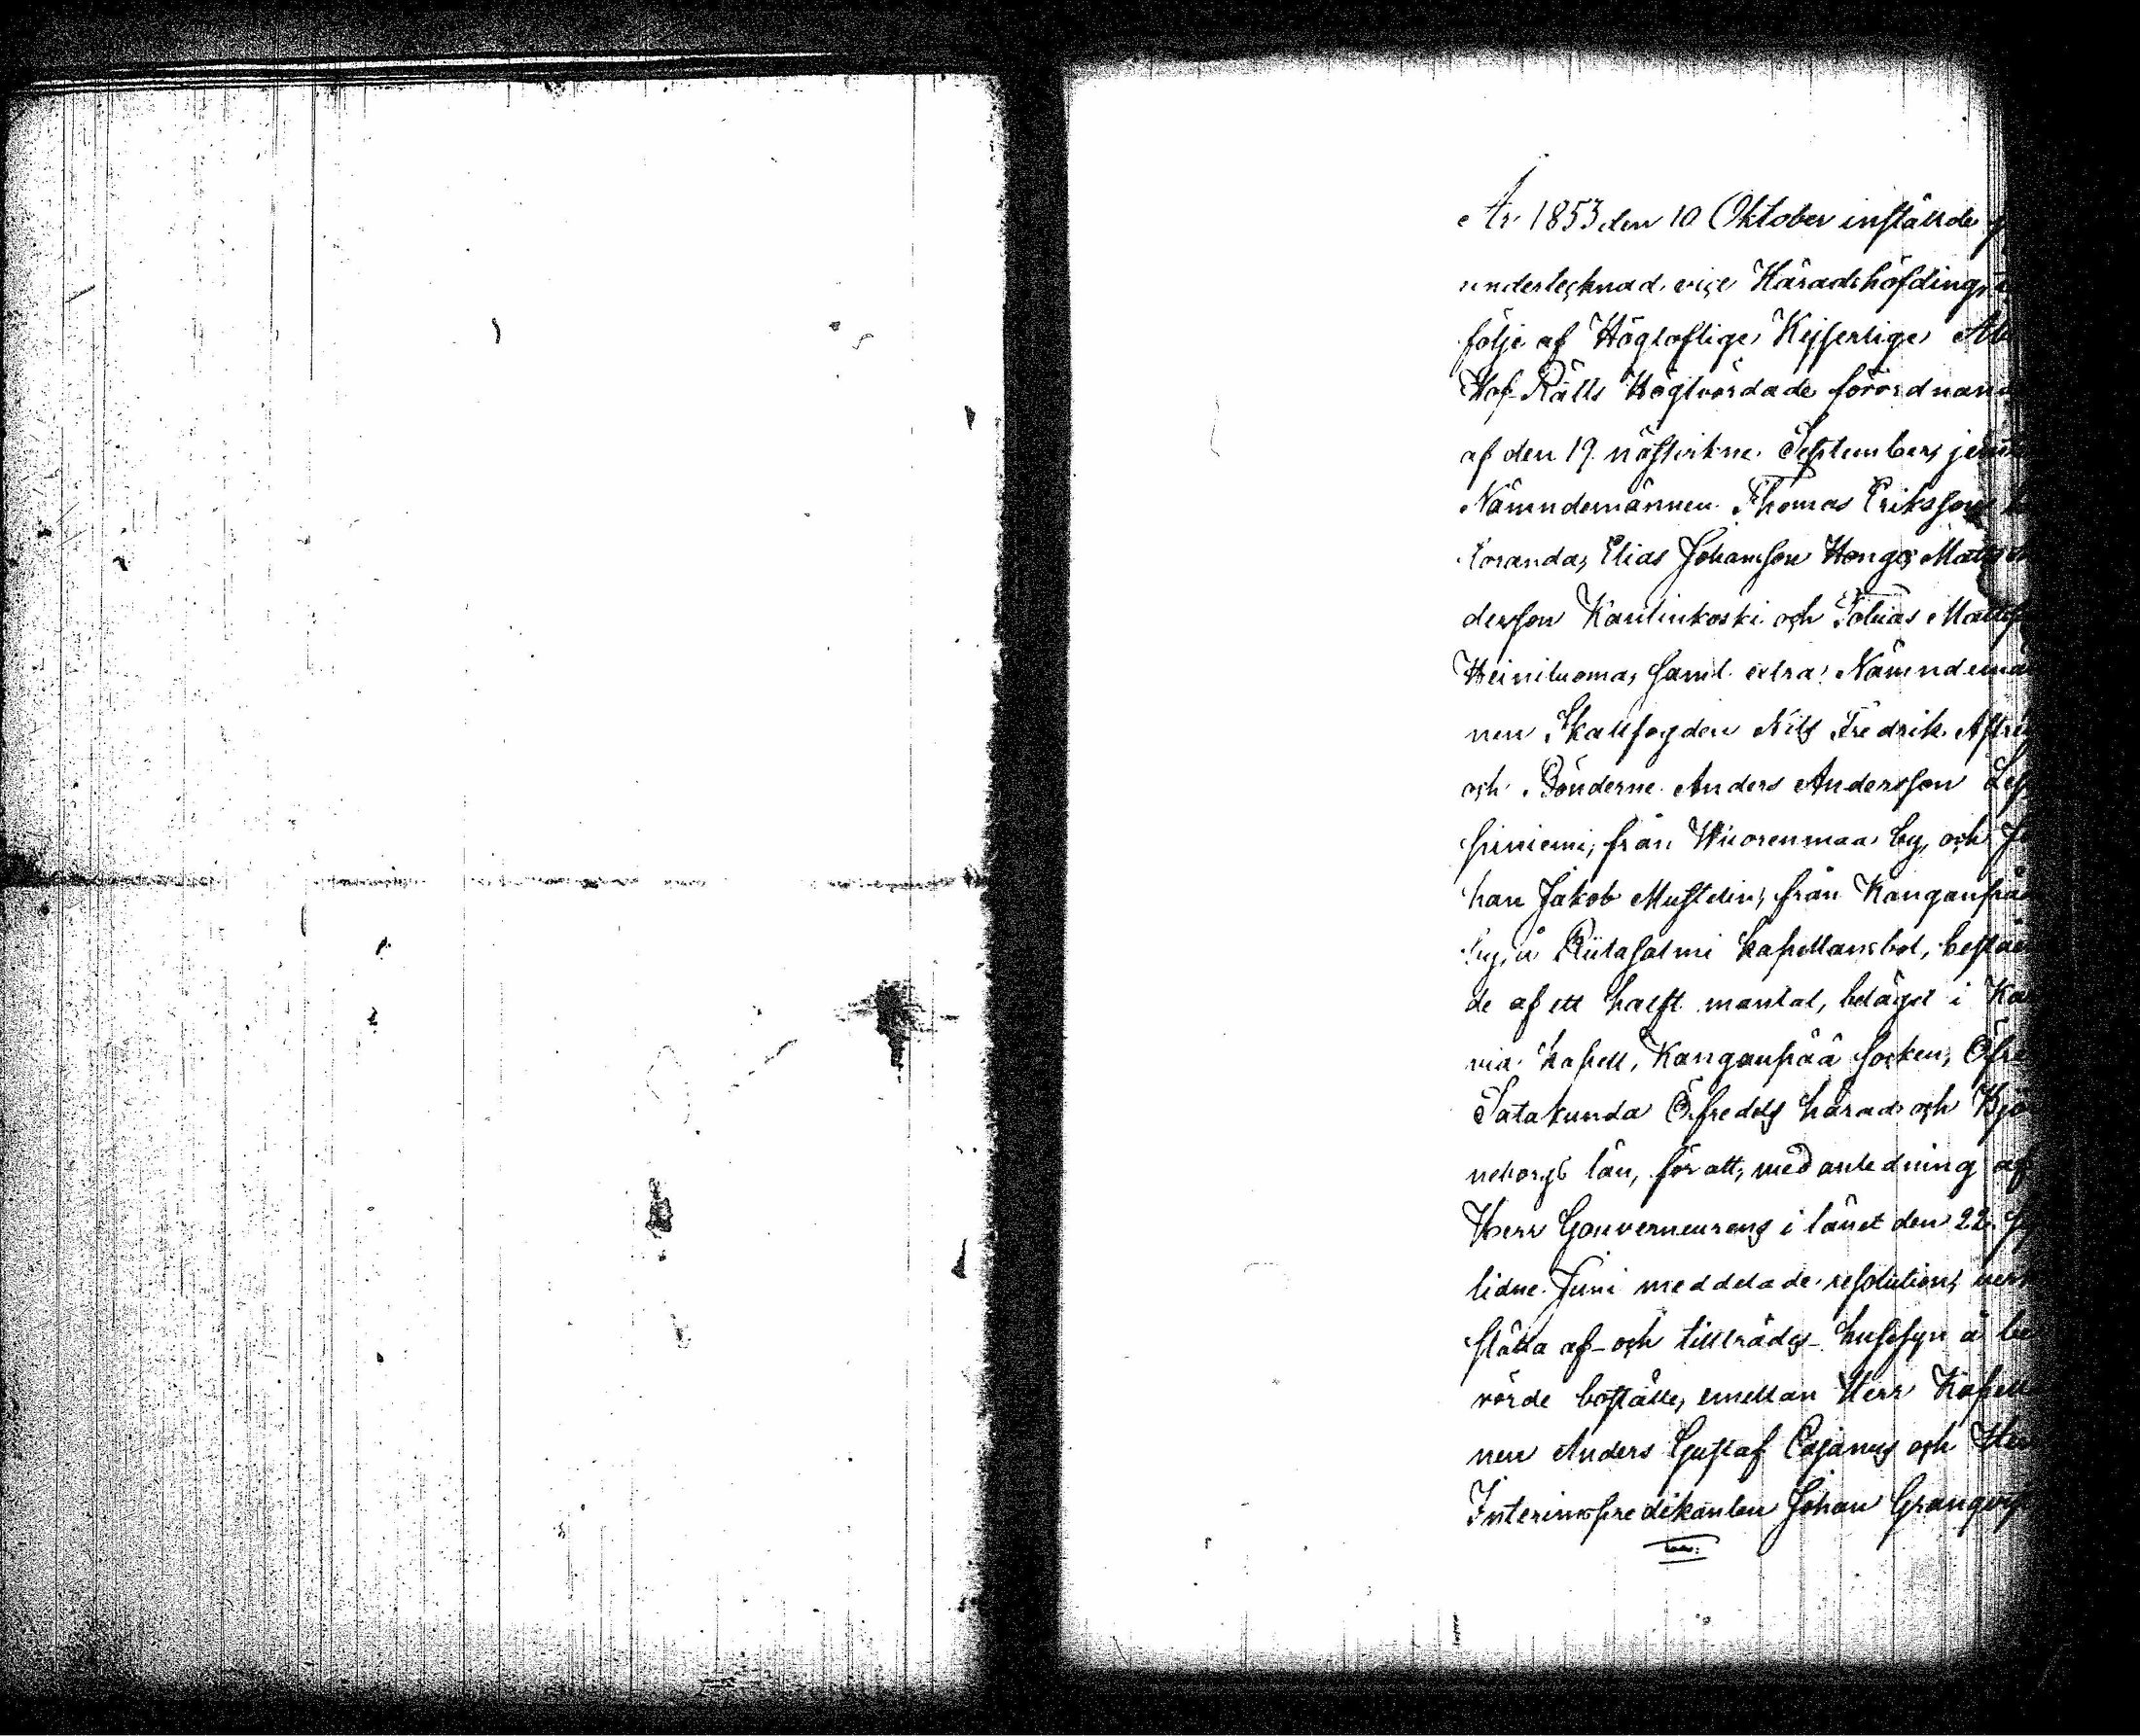 År 1853 den 10 Oktober inställde
undertecknad vice Häradshöfding,
följe af Högloflige Kejserlige Åbo
Hof-Rätts Högtvördade förordnan
af den 19 nästvikne September, jemte
Nämndemännen Thomas Eriksson
Loranda, Elias Johansson Honge, Matts An
dersson Kaulinkoski och Tobias Mattss
Heiniluoma, samt extra Nämndemän
nen Skallfogden Nils Fredrik
och Bönderne Anders Andersson Lep
päniemi, från Wuorenmaa by, och Jo
han Jakob Mustelin, från Kanganpää
by, å Riitasalmi kapellansbol, bestäen
de af ett halft mantal, beläget i Kar
via kapell, Kanganpää socken, Öfre
Satakunda Öfredels härad och Bjö
neborgs län, för att, med anledning af
Herr Gouverneurens i länet den 22
lidne Juni meddelade resolution, verk
ställa af- och tillträdes- husesyn å be
rörde boställe, emellan Herr Kapella
nen Anders Gustaf Cajanus och Herr
Interimspredikanten Johan Granqvist